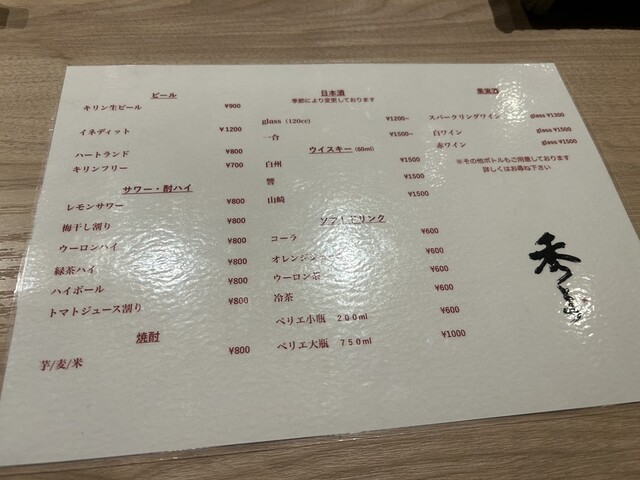 ビール
キリン生ビール ¥900
イネディット ¥1200
ハートランド ¥800
キリンフリー ¥700
サワー・酎ハイ
レモンサワー ¥800
梅干し割り ¥800
ウーロンハイ ¥800
緑茶ハイ ¥800
ハイボール ¥800
トマトジュース割り ¥800
焼酎
芋/麦/米 ¥800
日本酒
季節により変更しております
glass（120cc） ¥1200~
一合 ¥1500~
ウイスキー（60ml）
白州 ¥1500
響 ¥1500
山崎 ¥1500
ソフトドリンク
コーラ ¥600
オレンジジュース ¥600
ウーロン茶 ¥600
冷茶 ¥600
ペリエ小瓶 200ml ¥600
ペリエ大瓶 750ml ¥1000
果実酒
スパークリングワイン glass ¥1300
白ワイン glass ¥1500
赤ワイン glass ¥1500
※その他ボトルもご用意しております
詳しくはお尋ね下さい
秀